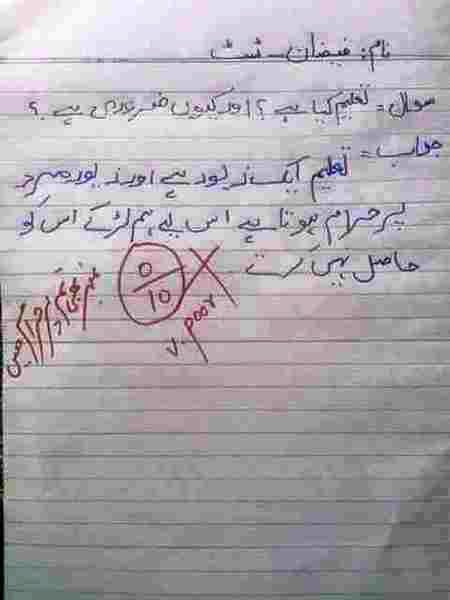 نام: فیضان - ٹسٹ
سوال = تعلیم کیا ہے؟ اور کیوں ضروری ہے؟
جواب = تعلیم ایک زیور ہے اور زیور مرد
پر حرام ہوتا ہے اس لیے ہم لڑکے اس کو
حاصل نہیں کرتے
0/10
v.poor